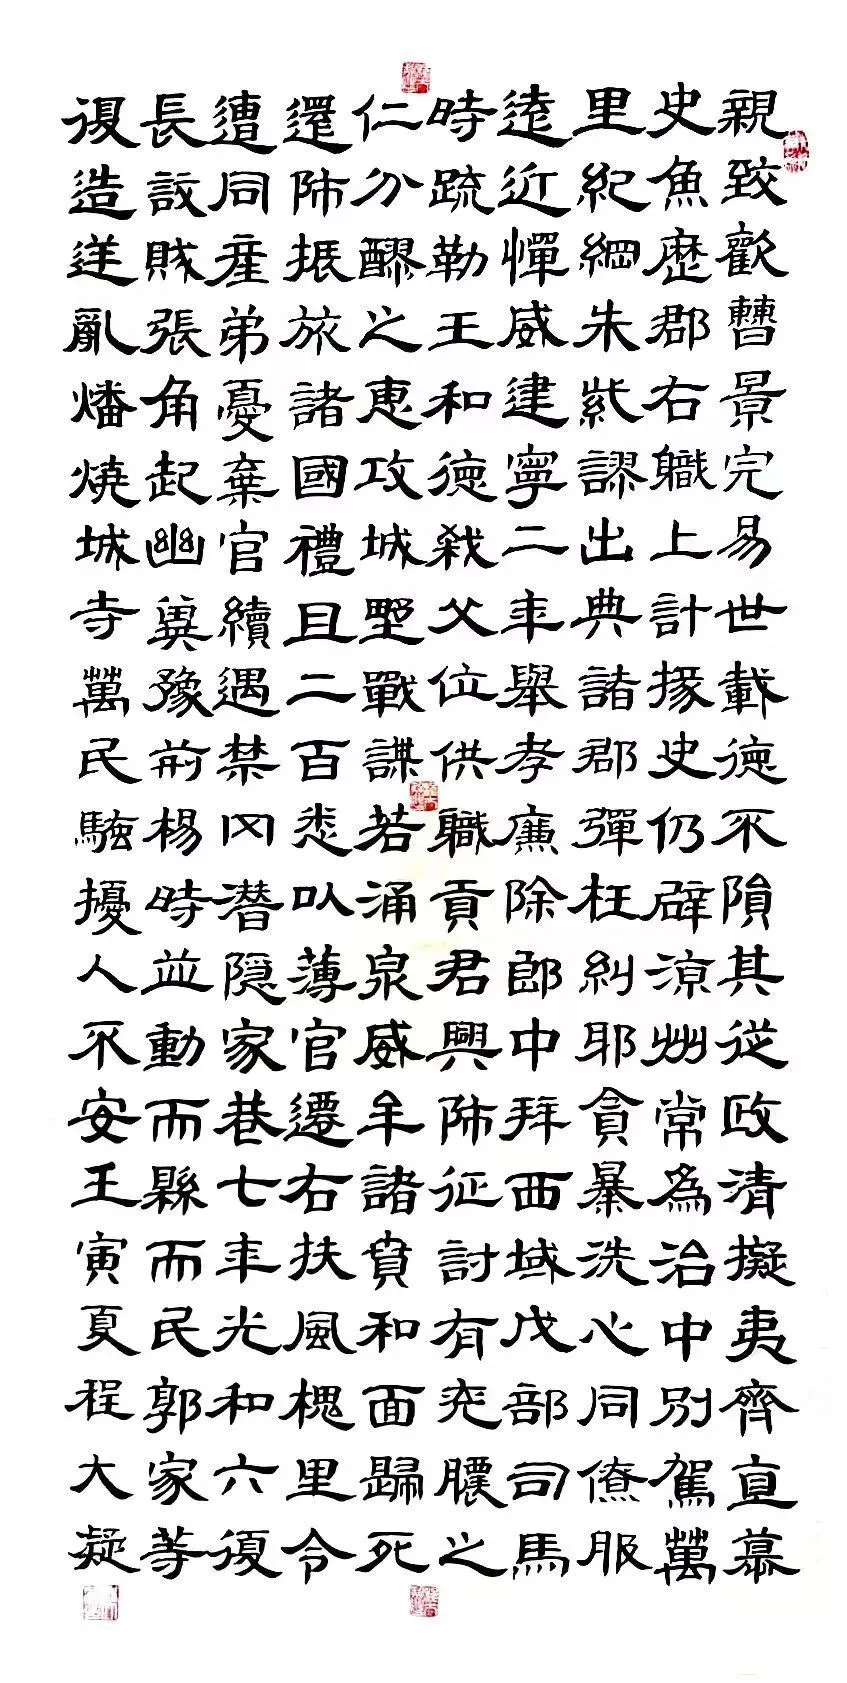 親致歡曹景完易世載德不隕其從政清擬夷齊直慕
史魚歷郡右職上計掾史仍辟涼州常為治中別駕萬
里紀綱朱紫謬出典諸郡彈枉糾耶貪暴洗心同僚服
遠近憚威建寧二年舉孝廉除郎中拜西域戊部司馬
時疏勒王和德弒父位供職貢君興師征討有兗膿之
仁分醪之惠攻城野戰謀若涌泉威牟諸賁和面歸死
還師振旅諸國禮且二百悉以薄官遷右扶風槐里令
遭同產弟憂棄官續遇禁网潛隱家巷七年光和六復
長訞賊張角起幽冀豫荊楊時並動而縣而民郭家等
復造逆亂燔燒城寺萬民騷擾人不安壬寅夏程大凝